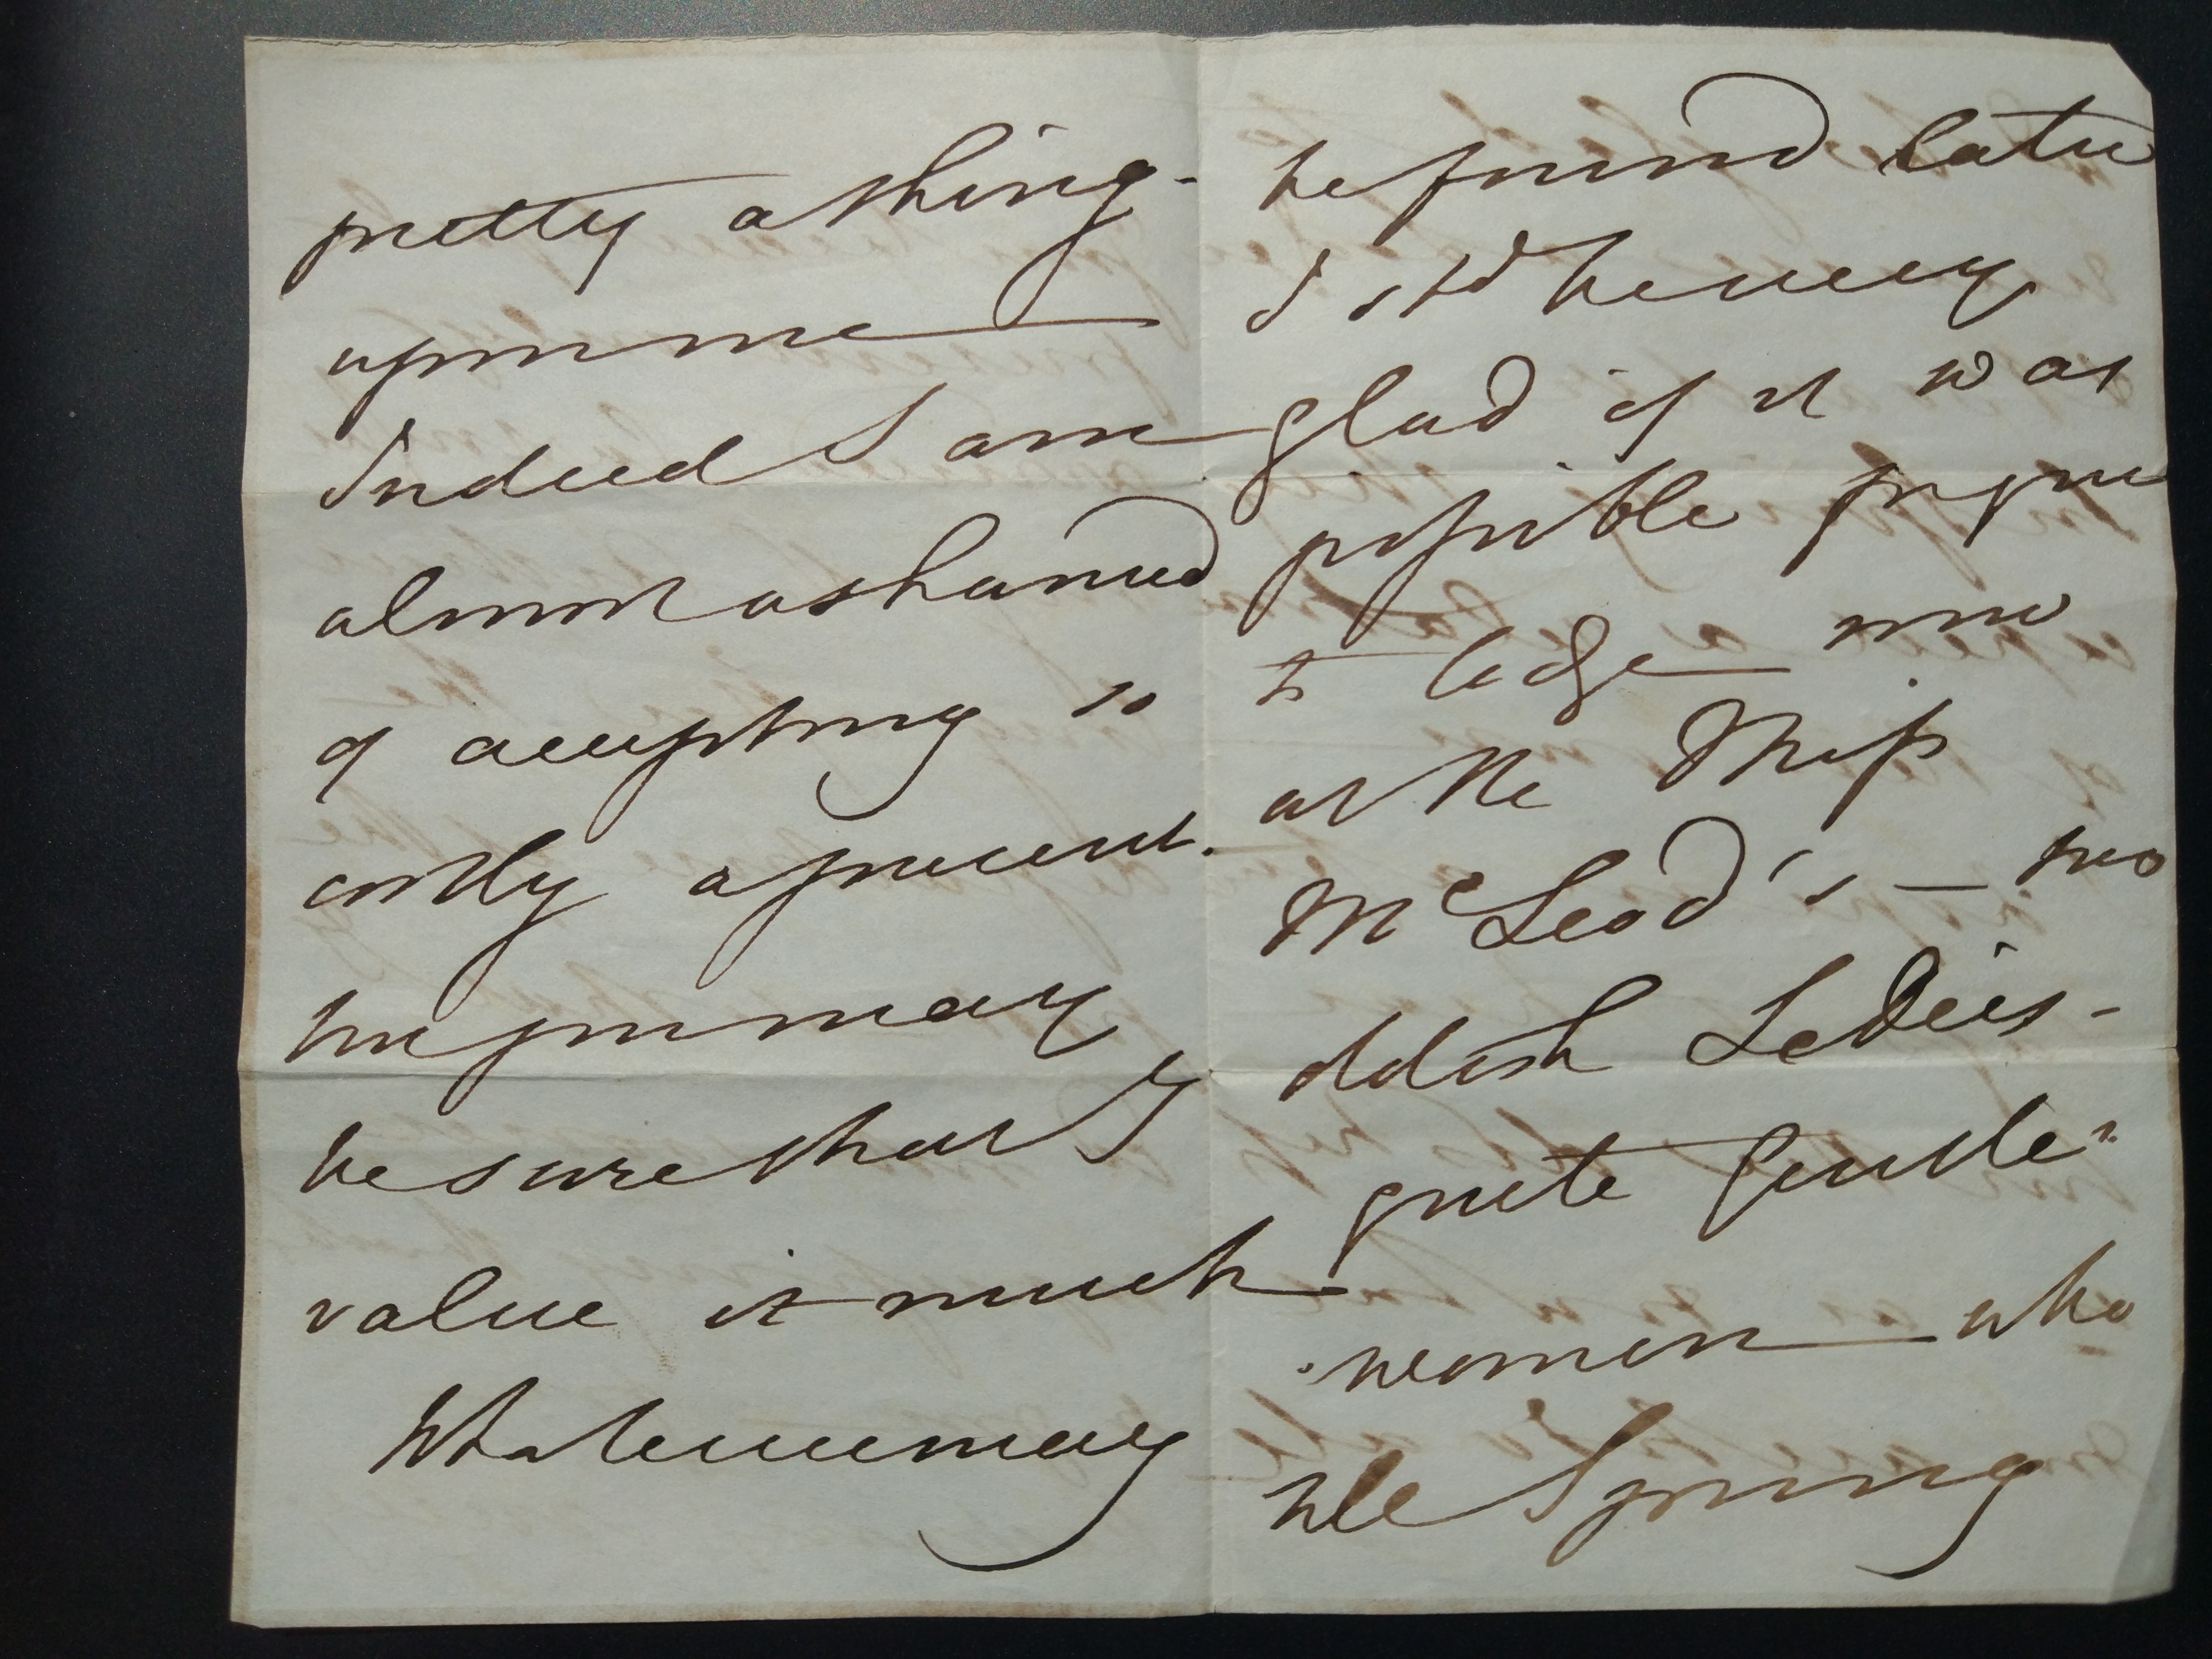 pretty a thing -
upon me
Indeed I am
almost ashamed
of accepting so
costly a present.
but you may
be sure that I
value it much
Whatever may
be found later
I shd be very
glad if it was
possible for you
to lodge now
at the Miss
McLeod's — two
oldish Ladies -
quite Gentle=
women who
till Spring